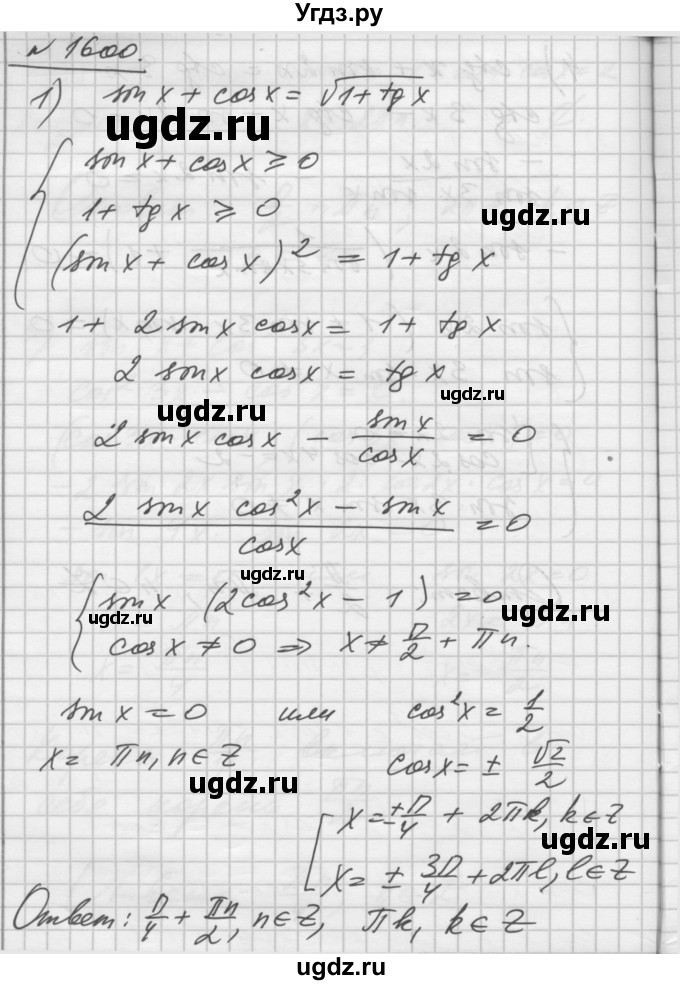 Угдз.ру
№ 1600.
1) sin x + cos x = √(1 + tg x)
ugdz.ru
{ sin x + cos x ⩾ 0
1 + tg x ⩾ 0
ugdz.ru
(sin x + cos x)² = 1 + tg x
ugdz.ru
1 + 2 sin x cos x = 1 + tg x
2 sin x cos x = tg x
ugdz.ru
ugdz.ru
2 sin x cos x − sin x / cos x = 0
(2 sin x cos² x − sin x) / cos x = 0
ugdz.ru
ugdz.ru
{ sin x (2 cos² x − 1) = 0
ugdz.ru
ugdz.ru
cos x ≠ 0 ⇒ x ≠ π/2 + πn.
sin x = 0 или cos² x = 1/2
x = πn, n ∈ Z cos x = ± √2/2
ugdz.ru
[ x = ± π/4 + 2πk, k ∈ Z
ugdz.ru
x = ± 3π/4 + 2πl, l ∈ Z
Ответ: π/4 + πn/2, n ∈ Z, πk, k ∈ Z
ugdz.ru
ugdz.ru